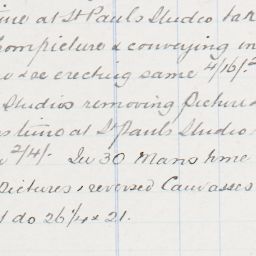 time at St Pauls Studio tak
from picture & conveying in
& re erecting same 4/16/.
Studios removing Picture
time at St Pauls Studio
2/4/. Dec 30 Mans time
Pictures, reversed Canvasses
do 26¼ x 21.